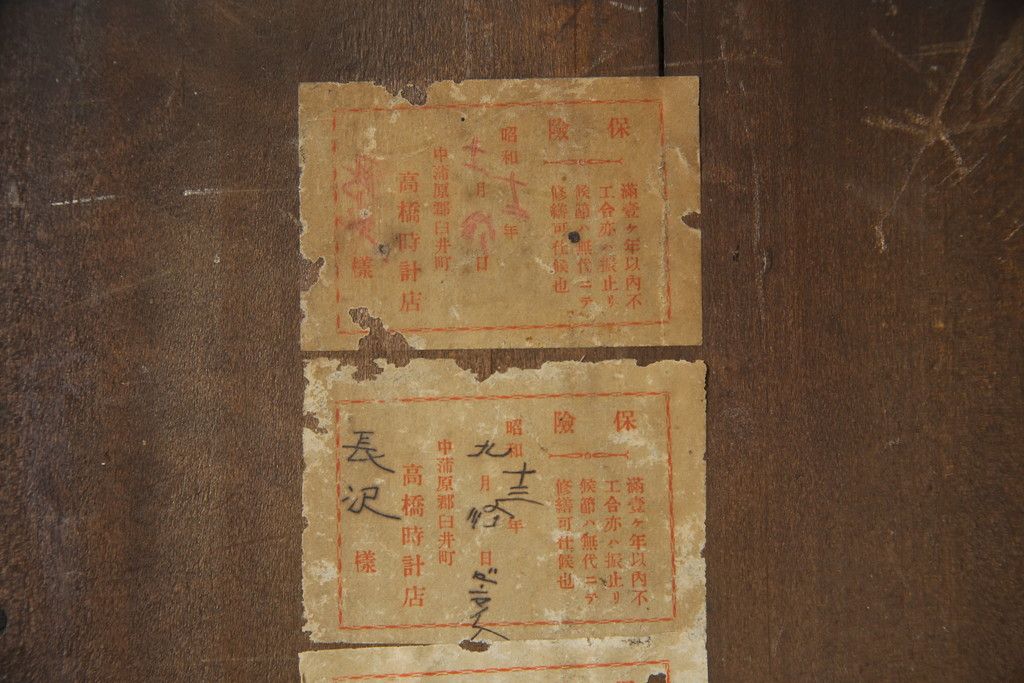 保險
滿壹ヶ年以內不
工合亦ハ振止リ
候節ハ無代ニテ
修繕可仕候也
昭和十三年
十一月 日
中蒲原郡臼井町
高橋時計店
樣
保險
滿壹ヶ年以內不
工合亦ハ振止リ
候節ハ無代ニテ
修繕可仕候也
昭和十三年
九月 日
中蒲原郡臼井町
高橋時計店
長沢樣
保